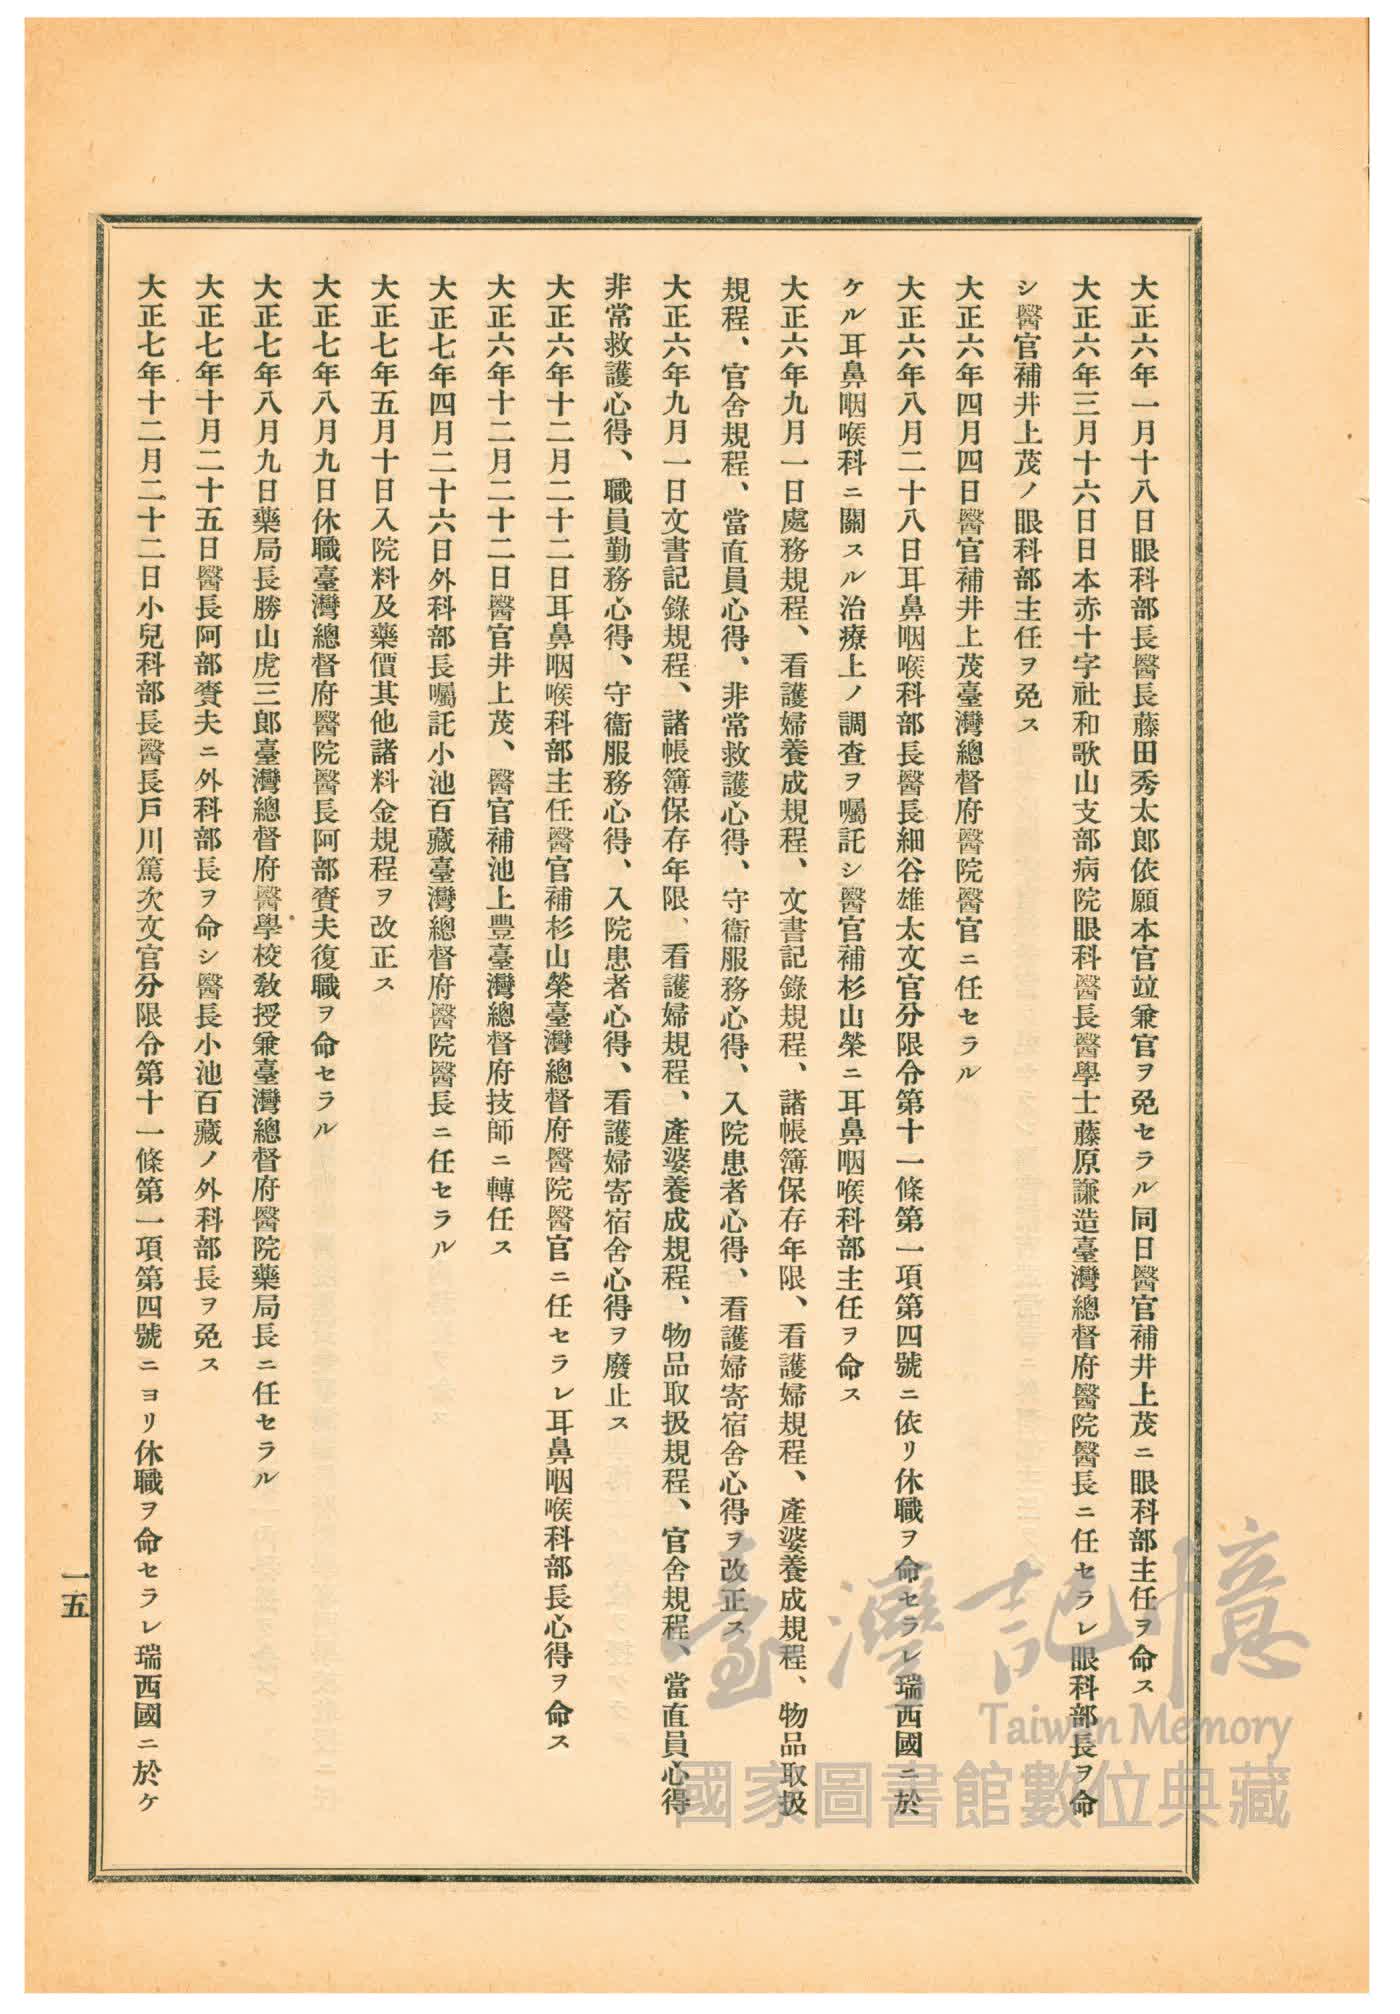 大正六年一月十八日眼科部長醫長藤田秀太郎依願本官竝兼官ヲ免セラル同日醫官補井上茂ニ眼科部主任ヲ命ス
大正六年三月十六日日本赤十字社和歌山支部病院眼科醫長醫學士藤原謙造臺灣總督府醫院醫長ニ任セラレ眼科部長ヲ命
シ醫官補井上茂ノ眼科部主任ヲ免ス
大正六年四月四日醫官補井上茂臺灣總督府醫院醫官ニ任セラル
大正六年八月二十八日耳鼻咽喉科部長醫長細谷雄太文官分限令第十一條第一項第四號ニ依リ休職ヲ命セラレ瑞西國ニ於
ケル耳鼻咽喉科ニ關スル治療上ノ調查ヲ囑託シ醫官補杉山榮ニ耳鼻咽喉科部主任ヲ命ス
大正六年九月一日處務規程、看護婦養成規程、文書記錄規程、諸帳簿保存年限、看護婦規程、產婆養成規程、物品取扱
規程、官舍規程、當直員心得、非常救護心得、守衞服務心得、入院患者心得、看護婦寄宿舍心得ヲ改正ス
大正六年九月一日文書記錄規程、諸帳簿保存年限、看護婦規程、產婆養成規程、物品取扱規程、官舍規程、當直員心得
非常救護心得、職員勤務心得、守衞服務心得、入院患者心得、看護婦寄宿舍心得ヲ廢止ス
大正六年十二月二十二日耳鼻咽喉科部主任醫官補杉山榮臺灣總督府醫院醫官ニ任セラレ耳鼻咽喉科部長心得ヲ命ス
大正六年十二月二十二日醫官井上茂、醫官補池上豐臺灣總督府技師ニ轉任ス
大正七年四月二十六日外科部長囑託小池百藏臺灣總督府醫院醫長ニ任セラル
大正七年五月十日入院料及藥價其他諸料金規程ヲ改正ス
大正七年八月九日休職臺灣總督府醫院醫長阿部賚夫復職ヲ命セラル
大正七年八月九日藥局長勝山虎三郎臺灣總督府醫學校敎授兼臺灣總督府醫院藥局長ニ任セラル
大正七年十月二十五日醫長阿部賚夫ニ外科部長ヲ命シ醫長小池百藏ノ外科部長ヲ免ス
大正七年十二月二十二日小兒科部長醫長戶川篤次文官分限令第十一條第一項第四號ニヨリ休職ヲ命セラレ瑞西國ニ於ケ
一五
臺灣記憶
Taiwan Memory
國家圖書館數位典藏